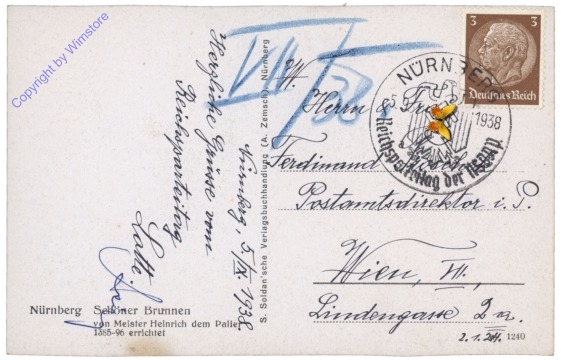 Copyright by Winstore
VIII/38.
Herzliche Grüsse vom
Reichsparteitag
Lotte
Nürnberg, 5/IX. 1938
S. Soldan'sche Verlagsbuchhandlung (A. Zemsch), Nürnberg
3 3
Deutsches Reich
NÜRNBERG
1938
Reichsparteitag der NSDAP
Herrn &
Ferdinand
Postamtsdirektor i. P.
Wien, VII.,
Lindengasse 2a.
Nürnberg Schöner Brunnen
von Meister Heinrich dem Palier
1385-96 errichtet
1240